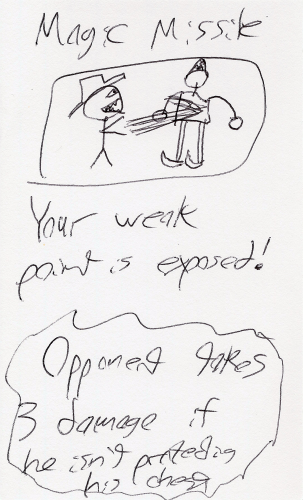 Magic Missile
Your weak
point is exposed!
Opponent takes
3 damage if
he isn't protecting
his chest